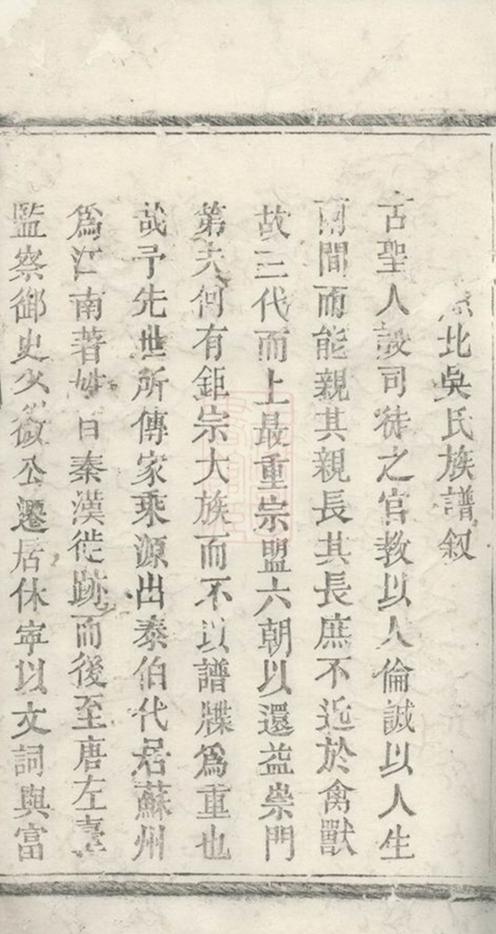 北吳氏族譜叙
古聖人設司徒之官教以人倫誠以人生
兩間而能親其親長其長庶不近於禽獸
故三代而上最重宗盟六朝以還益崇門
第夫何有鉅宗大族而不以譜牒爲重也
哉予先世所傳家乘源出泰伯代居蘇州
爲江南著姓自秦漢徙跡而後至唐左臺
監察御史少微公遷居休寧以文詞與富